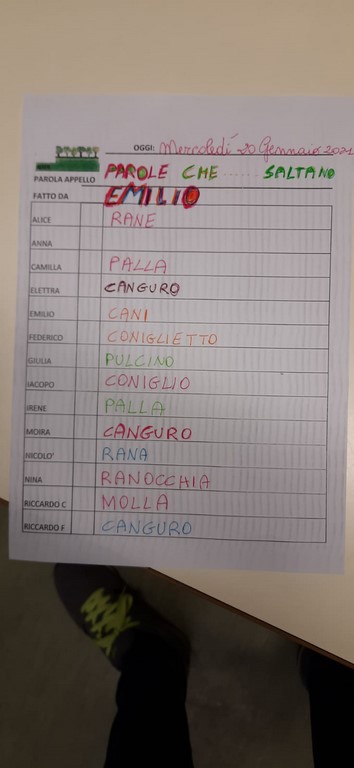 OGGI: Mercoledì 20 Gennaio 2021
PAROLA APPELLO PAROLE CHE ...... SALTANO
FATTO DA EMILIO
ALICE RANE
ANNA
CAMILLA PALLA
ELETTRA CANGURO
EMILIO CANI
FEDERICO CONIGLIETTO
GIULIA PULCINO
IACOPO CONIGLIO
IRENE PALLA
MOIRA CANGURO
NICOLO' RANA
NINA RANOCCHIA
RICCARDO C MOLLA
RICCARDO F CANGURO